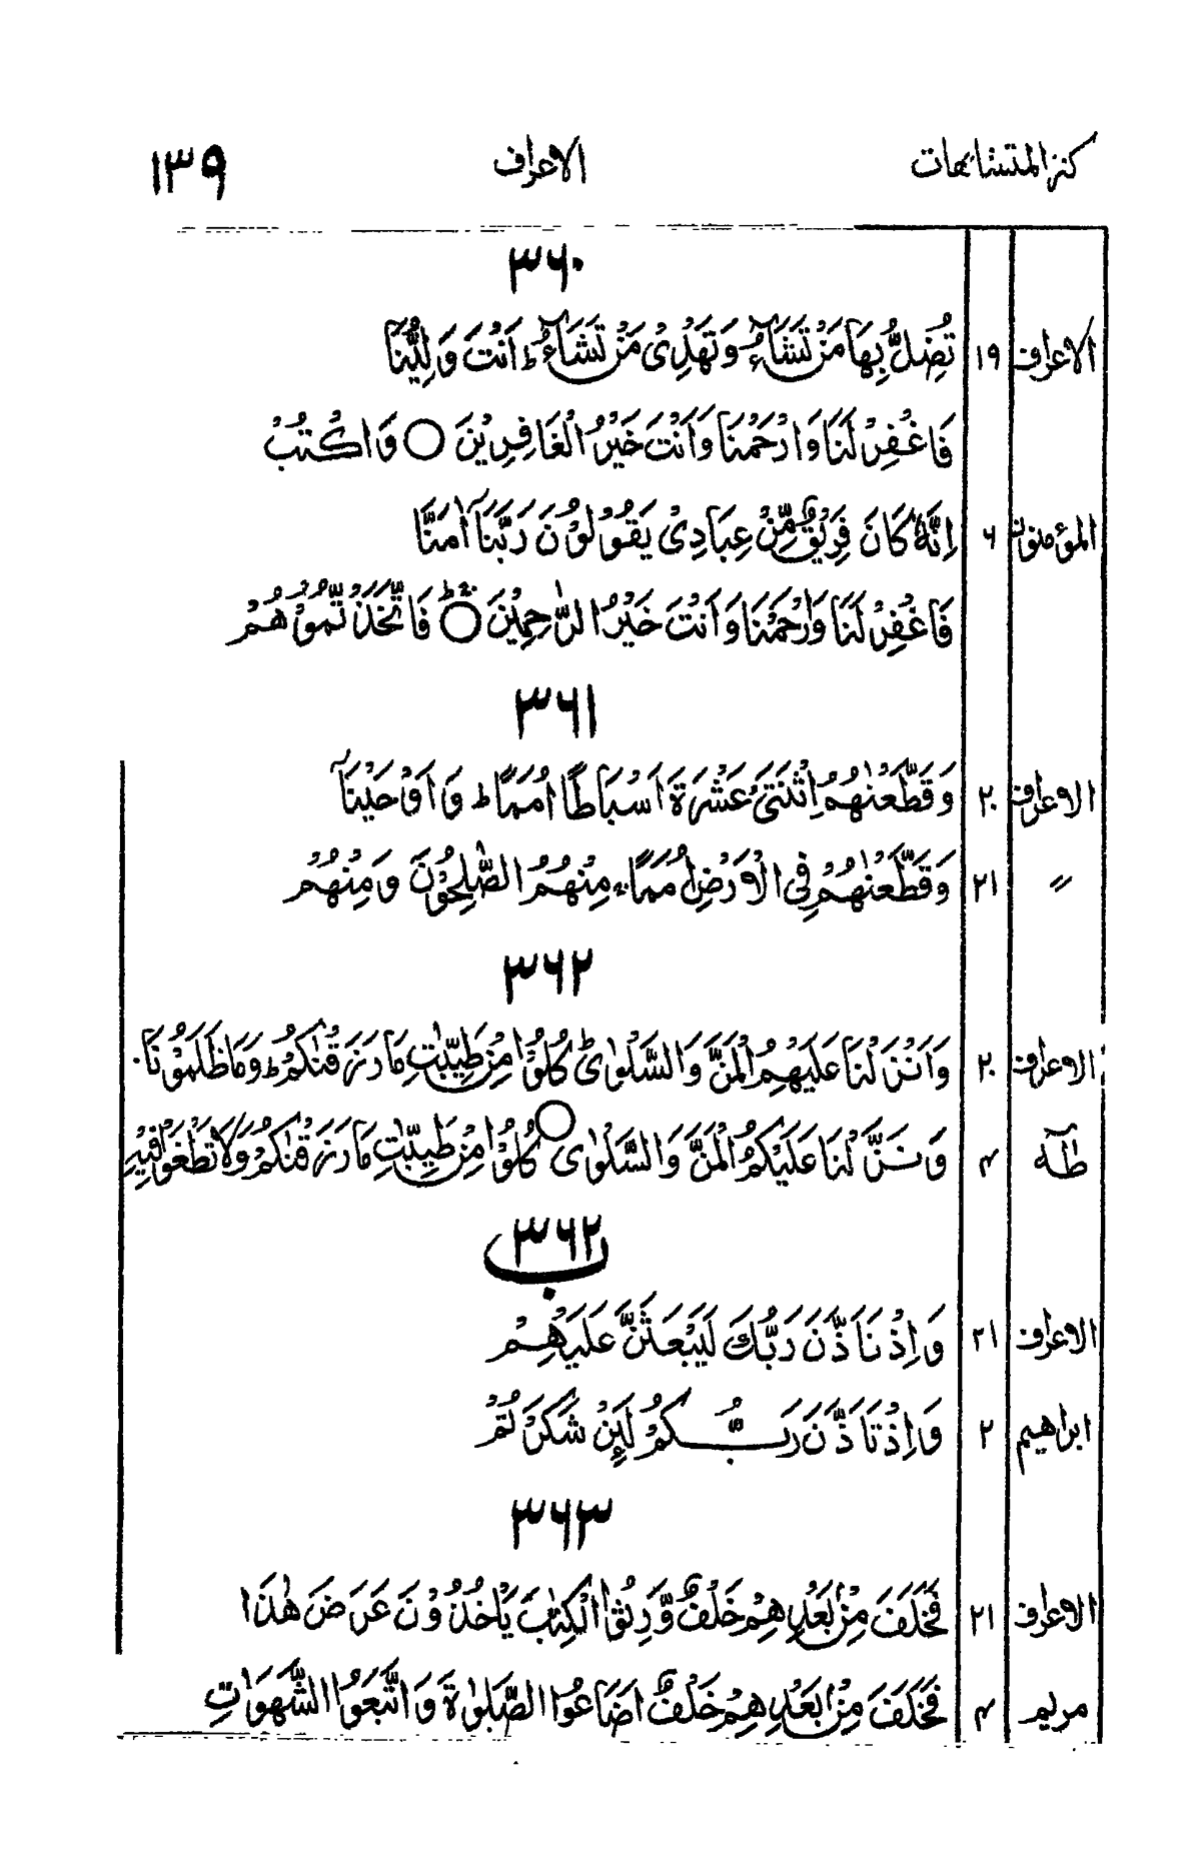 كنز المتشابهات الاعراف ١٣٩
٣٦٠
الاعراف ١٩ تُضِلُّ بِهَا مَنْ تَشَآءُ وَتَهْدِىْ مَنْ تَشَآءُ ؕ اَنْتَ وَلِيُّنَا
فَاغْفِرْ لَنَا وَارْحَمْنَا وَاَنْتَ خَيْرُ الْغَافِرِيْنَ ○ وَاكْتُبْ
المؤمنون ٦ اِنَّهٗ كَانَ فَرِيْقٌ مِّنْ عِبَادِىْ يَقُوْلُوْنَ رَبَّنَآ اٰمَنَّا
فَاغْفِرْ لَنَا وَارْحَمْنَا وَاَنْتَ خَيْرُ الرّٰحِمِيْنَ ○ فَاتَّخَذْتُمُوْهُمْ
٣٦١
الاعراف ٢٠ وَقَطَّعْنٰهُمُ اثْنَتَىْ عَشْرَةَ اَسْبَاطًا اُمَمًا ؕ وَاَوْحَيْنَآ
〃 ٢١ وَقَطَّعْنٰهُمْ فِى الْاَرْضِ اُمَمًا ۚ مِنْهُمُ الصّٰلِحُوْنَ وَمِنْهُمْ
٣٦٢
الاعراف ٢٠ وَاَنْزَلْنَا عَلَيْهِمُ الْمَنَّ وَالسَّلْوٰى ؕ كُلُوْا مِنْ طَيِّبٰتِ مَا رَزَقْنٰكُمْ ؕ وَمَا ظَلَمُوْنَا
طٰهٰ ٤ وَنَزَّلْنَا عَلَيْكُمُ الْمَنَّ وَالسَّلْوٰى ○ كُلُوْا مِنْ طَيِّبٰتِ مَا رَزَقْنٰكُمْ وَلَا تَطْغَوْا فِيْهِ
٣٦٢ ب
الاعراف ٢١ وَاِذْ تَاَذَّنَ رَبُّكَ لَيَبْعَثَنَّ عَلَيْهِمْ
ابراهيم ٢ وَاِذْ تَاَذَّنَ رَبُّكُمْ لَئِنْ شَكَرْتُمْ
٣٦٣
الاعراف ٢١ فَخَلَفَ مِنْۢ بَعْدِهِمْ خَلْفٌ وَّرِثُوا الْكِتٰبَ يَاْخُذُوْنَ عَرَضَ هٰذَا
مريم ٤ فَخَلَفَ مِنْۢ بَعْدِهِمْ خَلْفٌ اَضَاعُوا الصَّلٰوةَ وَاتَّبَعُوا الشَّهَوٰتِ